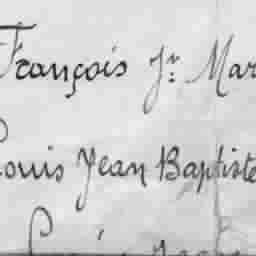 François Jr. Mar
Louis Jean Baptiste